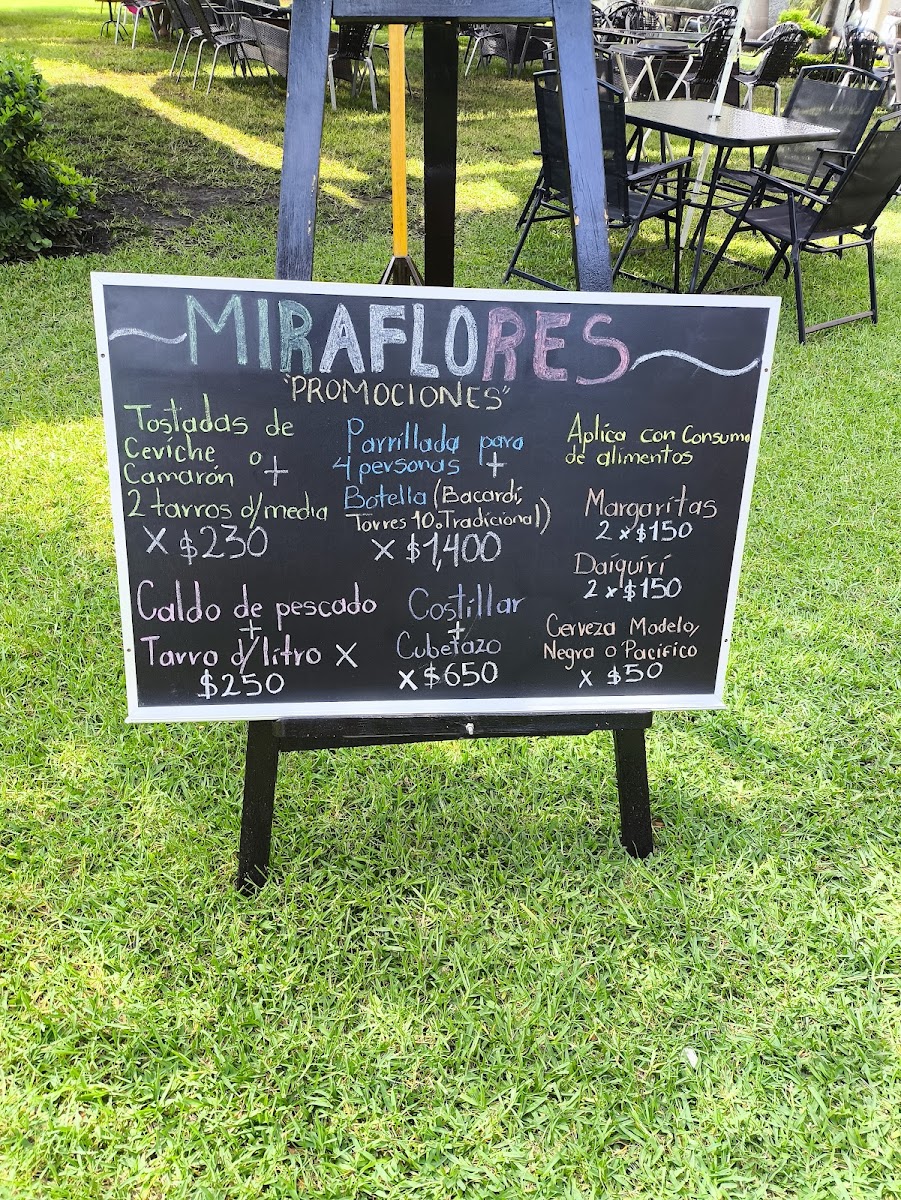 MIRAFLORES
"PROMOCIONES"
Tostadas de
Ceviche o
Camarón +
2 tarros d/media
X $230
Caldo de pescado
+
Tarro d/litro X
$250
Parrillada para
4 personas +
Botella (Bacardí,
Torres 10 o Tradicional)
X $1,400
Costillar
+
Cubetazo
X $650
Aplica con Consumo
de alimentos
Margaritas
2 x $150
Daiquirí
2 x $150
Cerveza Modelo,
Negra o Pacifico
X $50